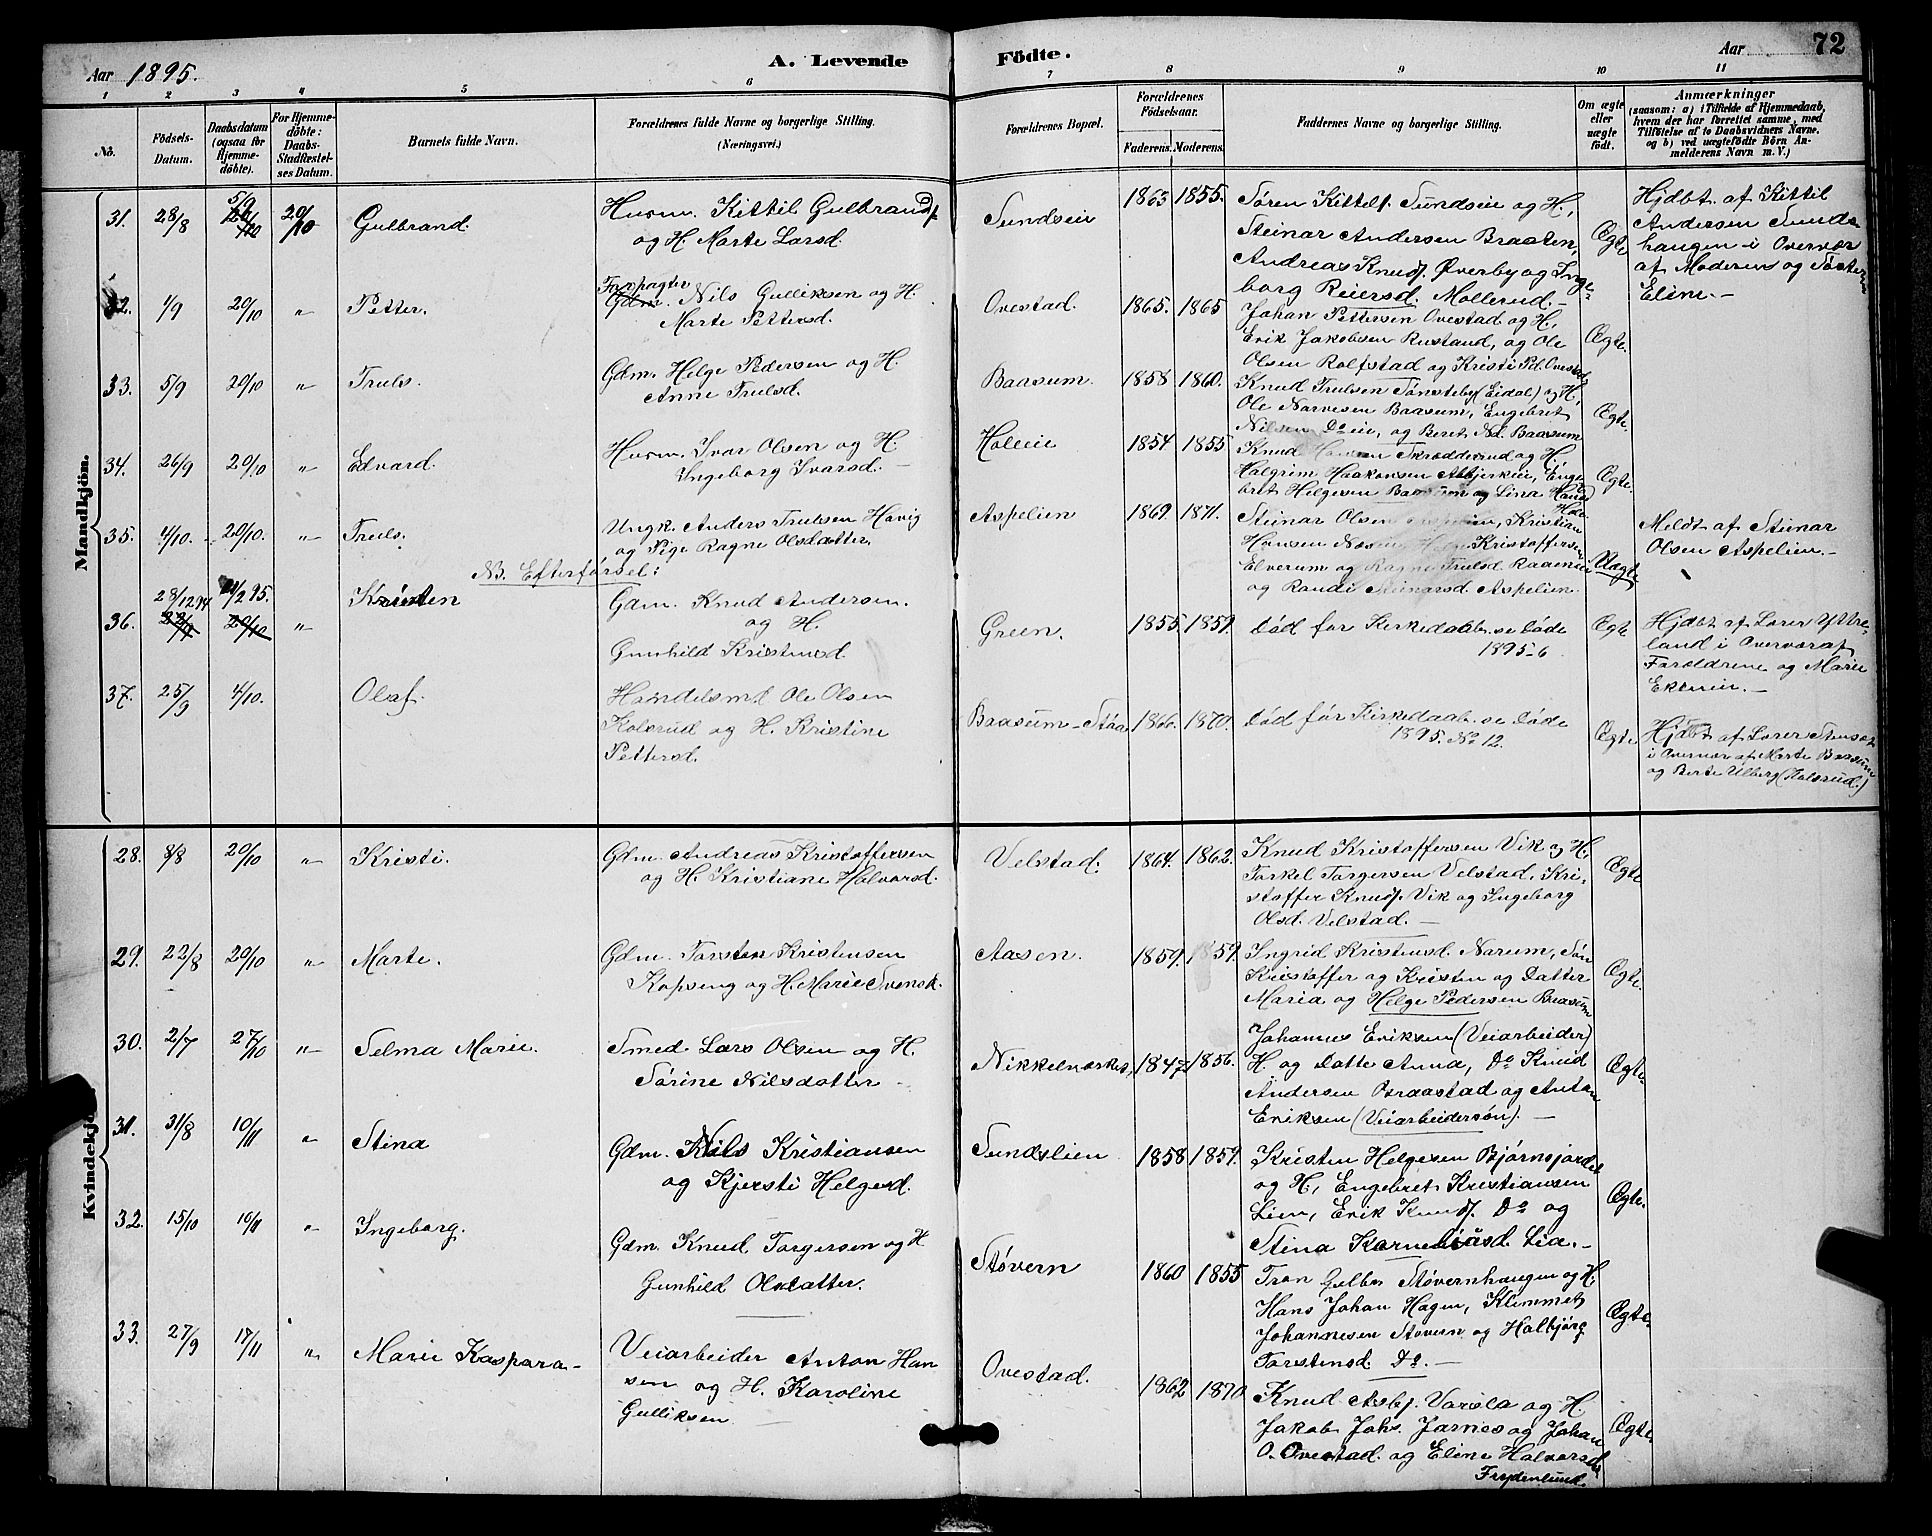 Aar 1895.
A. Levende
Fødte.
Aar
72
1 2 3 4 5 6 7 8 9 10 11
No.
Fødsels-Datum.
Daabsdatum (ogsaa for Hjemmedøbte).
For Hjemmedøbte: Daabs-Stadfæstelses Datum.
Barnets fulde Navn.
Forældrenes fulde Navne og borgerlige Stilling.
(Næringsvei.)
Forældrenes Bopæl.
Forældrenes Fødselsaar.
Faderens. Moderens.
Faddernes Navne og borgerlige Stilling.
Om ægte eller uægte født.
Anmærkninger
(saasom: a) i Tilfælde af Hjemmedaab, hvem der har forrettet samme, med Tilføielse af to Daabsvidners Navne, og b) ved uægtefødte Børn Anmelderens Navn m. V.)
Mandkjön.
31. 28/8 5/9 20/10 20/10 Gulbrand. Husm. Kittil Gulbrands. og H. Marte Larsd. Sundseie 1863 1855. Søren Kittels. Sundseie og H,
Steinar Andersen Braaten,
Andreas Knuds. Øverby og Inge-
borg Reiersd. Mollerud. Ægte
Hjdbt. af Kittil
Andersen Sunds-
haugen i Overvær
af Moderen og Søster
Eline.
32. 1/9 20/10 " Petter. Forpagter
Gdm. Nils Gulliksen og H.
Marte Pettersd. Ovestad. 1865. 1865 Johan Pettersen Ovestad og H,
Erik Jakobsen Rustand, og Ole
Olsen Rolfstad og Kristi Pd. Ovestad Ægte.
33. 5/9 20/10 " Truls. Gdm. Helge Pedersen og H.
Anne Trulsd. Baasum. 1858 1860. Knud Trulsen Tønsteby (Eidal) og H,
Ole Narvesen Baasum, Engebret
Nilsen Do eie, og Beret Nd. Baasum Ægte.
34. 26/9 20/10 " Edvard. Husm. Ivar Olsen og H.
Ingeborg Ivarsd. Holleie 1854 1855 Knud Skrædderud og H
Halgrim Haakonsen, Enge-
bret Helgesen Baasum og Lina Ægte.
35. 4/10. 20/10. " Truls. Ungk. Anders Trulsen Havig
og Pige Ragne Olsdatter. Aspelien 1869 1871. Steinar Olsen Aspelien, Kristian
Hansen Næsen, Helge Kristoffersen
Elverum og Ragne Trulsd. Raameie
og Randi Steinarsd. Aspelien. Uægte
Meldt af Steinar
Olsen Aspelien.
NB. Efterførsel:
36. 28/12 94 2/2 95. 22/9 20/10 " Kristen Gdm. Knud Andersen.
og H.
Gunhild Kristensd. Green. 1855. 1859. Død før Kirkedaab. se Døde
1895-6 Ægte
Hjdbt. af Lærer Yttre-
land i Overvær af
Forældrene og Marie
Ekerneie.
37. 25/9 4/10. Olaf. Handelsmd. Ole Olsen
Kolsrud og H. Kristine
Pettersd. Baasum-Støa 1866. 1870. Død før Kirkedaab. se Døde
1895. No 12. Ægte
Hjdbt. af Lærer Stenset
i Overvær af Marte Baasum
og Berte Ulberg (Kolsrud.)
Kvindekj
28. 8/8 20/10 " Kristi. Gdm. Andreas Kristoffersen
og H. Kristiane Halvorsd. Velstad. 1864. 1862. Knud Kristoffersen Vik og H,
Torkel Torgersen Velstad. Kri-
stoffer Knuds. Vik og Ingeborg
Olsd. Velstad. Ægte
29. 22/8 20/10 " Marte. Gdm. Torsten Kristensen
Kopseng og H. Marie Svensk. Aasen. 1859. 1859. Ingrid Kristensd. Narum, Søn
Kristoffer og Kristen og Datter
Maria og Helge Pedersen Baasum Ægte.
30. 2/7 27/10 " Selma Marie. Smed Lars Olsen og H.
Sørine Nilsdatter Nikkelværket, 1847 1856. Johannes Eriksen (Veiarbeider)
H. og Datte Anna, Do Knud
Andersen Braastad og Anton
Eriksen (Veiarbeidersøn). Ægte.
31. 31/8 10/11 " Stina Gdm. Nils Kristiansen
og Kjersti Helgesd. Sundslien 1858 1859. Kristen Helgesen Bjørnsjordet
og H, Engebret Kristiansen
Lien, Erik Knuds. Do og
Stina Korneliusd. Lia. Ægte.
32. 15/10 10/11 " Ingeborg. Gdm. Knud Torgersen og H
Gunhild Olsdatter. Støvern 1860 1855 Tron Gulbr. Støvernhaugen og H.
Hans Johan Hagen, Klemmet
Johannesen Støvern og Halbjørg
Torstensd. Do. Ægte.
33. 27/9 17/11 " Marie Kaspara Veiarbeider Anton Han
sen og H. Karoline
Gulliksen Ovestad. 1862 1870 Knud Asbj. Varsla og H.
Jakob Johs. Jarnes og Johan
O. Ovestad og Eline Halvorsd
Frydenlund. Ægte.